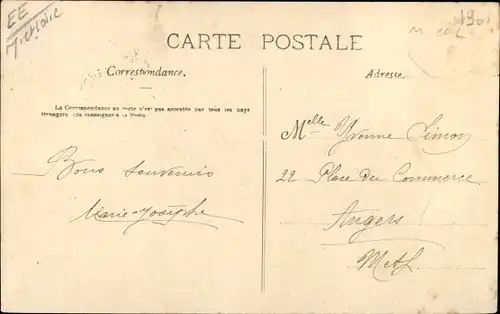 EE
190
M et L
CARTE POSTALE
Correspondance.
Adresse.
La Correspondance au recto n'est pas acceptée par tous les pays
étrangers (Se renseigner à la Poste).
Melle Yvonne Simon
Bons Souvenirs
22 Place du Commerce
Marie-Josèphe
Angers
M et L.